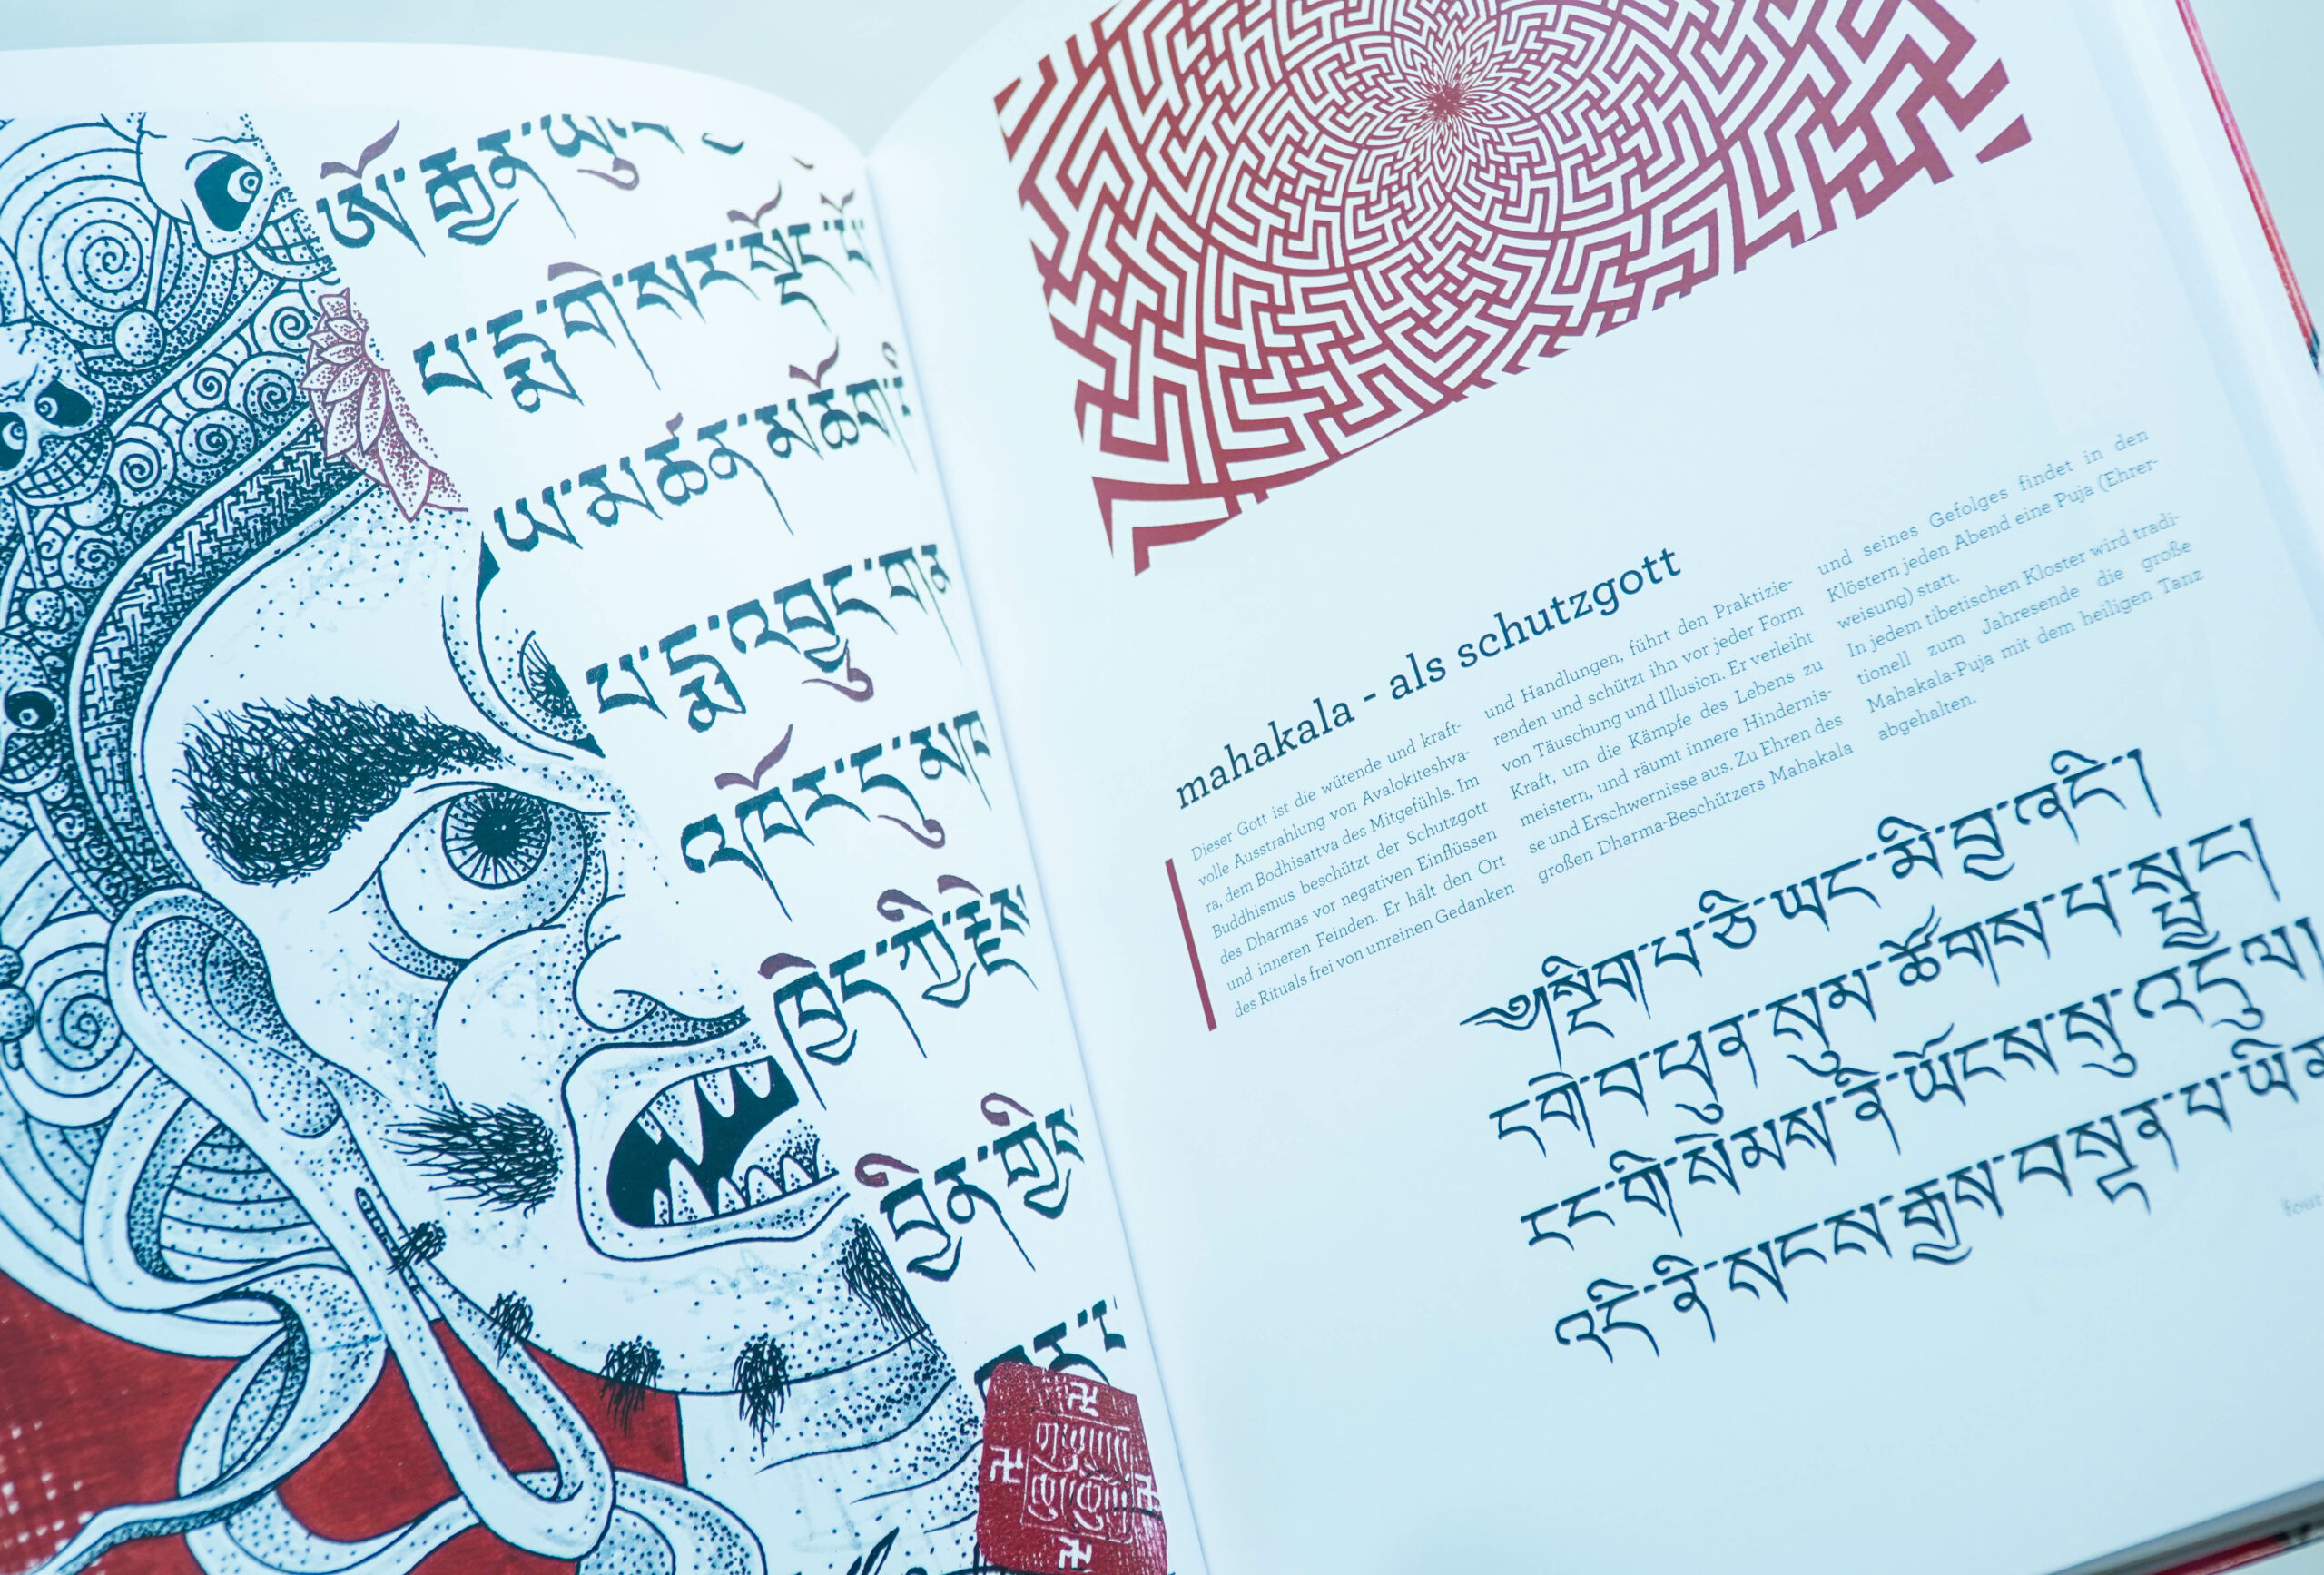 ཨོ་རྒྱན་ཡུ
པ་དྨ་གེ་སར་སྡོང་པོ
ཡ་མཚན་མཆོག་གི
པ་དྨ་འབྱུང་གན
འཁོར་དུ་མཁ
ཁྱེད་ཀྱི་རྗེས
བྱིན་གྱིས
mahakala - als schutzgott
Dieser Gott ist die wütende und kraft-
volle Ausstrahlung von Avalokiteshva-
ra, dem Bodhisattva des Mitgefühls. Im
Buddhismus beschützt der Schutzgott
des Dharmas vor negativen Einflüssen
und inneren Feinden. Er hält den Ort
des Rituals frei von unreinen Gedanken
und Handlungen, führt den Praktizie-
renden und schützt ihn vor jeder Form
von Täuschung und Illusion. Er verleiht
Kraft, um die Kämpfe des Lebens zu
meistern, und räumt innere Hindernis-
se und Erschwernisse aus. Zu Ehren des
großen Dharma-Beschützers Mahakala
und seines Gefolges findet in den
Klöstern jeden Abend eine Puja (Ehrer-
weisung) statt.
In jedem tibetischen Kloster wird tradi-
tionell zum Jahresende die große
Mahakala-Puja mit dem heiligen Tanz
abgehalten.
༄།སྡིག་པ་ཅི་ཡང་མི་བྱ་ཞིང་།
དགེ་བ་ཕུན་སུམ་ཚོགས་པ་སྤྱད།
རང་གི་སེམས་ནི་ཡོངས་སུ་འདུལ།
འདི་ནི་སངས་རྒྱས་བསྟན་པ་ཡིན